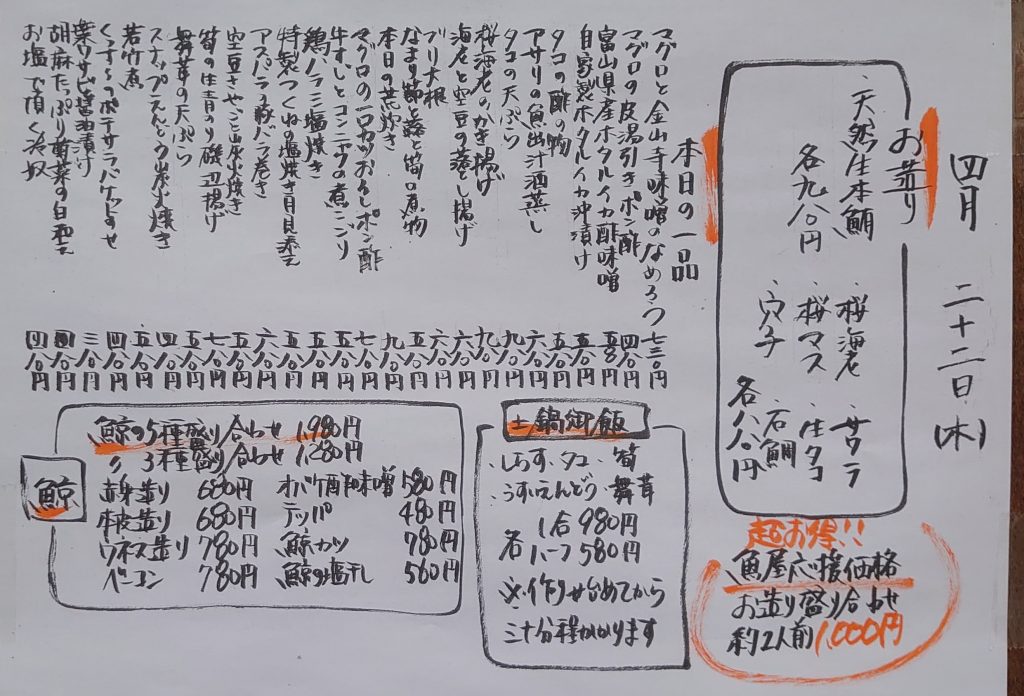 四月 二十二日(木)
お造り
・天然生本鮪
各九八〇円
・桜海老 ・サワラ
・桜マス ・生タコ
・穴子 ・石鯛
各八八〇円
超お得!!
魚屋応援価格
お造り盛り合わせ
約2人前1,000円
本日の一品
マグロと金山寺味噌のなめろう 七三〇円
マグロの皮湯引きポン酢 四八〇円
富山県産ホタルイカ酢味噌 五八〇円
自家製ホタルイカ沖漬け 五五〇円
タコの酢の物
タコの天ぷら
アサリの魚出汁酒蒸し
桜海老のかき揚げ
海老と空豆の落し揚げ
ブリ大根
なまり節と蕗と筍の煮物
本日の荒炊き
マグロの一口カツおろしポン酢
牛すじとコンニャクの煮こごり
鶏ハラミ塩焼き
特製つくねの塩焼き月見添え
アスパラ豚バラ巻き
空豆さやごと炭火焼き
筍の生青のり磯辺揚げ
舞茸の天ぷら
スナップえんどう炭火焼き
若竹煮
くんすーのポテサラバケットのせ
葉ワサビ醤油漬け
胡麻たっぷり前菜の白和え
お塩で頂く冷奴 四八〇円
土鍋御飯
・しらす・タコ・筍
・うすいえんどう・舞茸
各 1合 980円
ハーフ 580円
※作り始めてから
三十分程かかります
鯨
鯨の5種盛り合わせ 1,980円
〃 3種盛り合わせ 1,280円
赤身造り 680円 オバケ酢味噌 580円
本皮造り 680円 テッパ 480円
ウネス造り 780円 鯨カツ 780円
ベーコン 780円 鯨の塩干し 560円